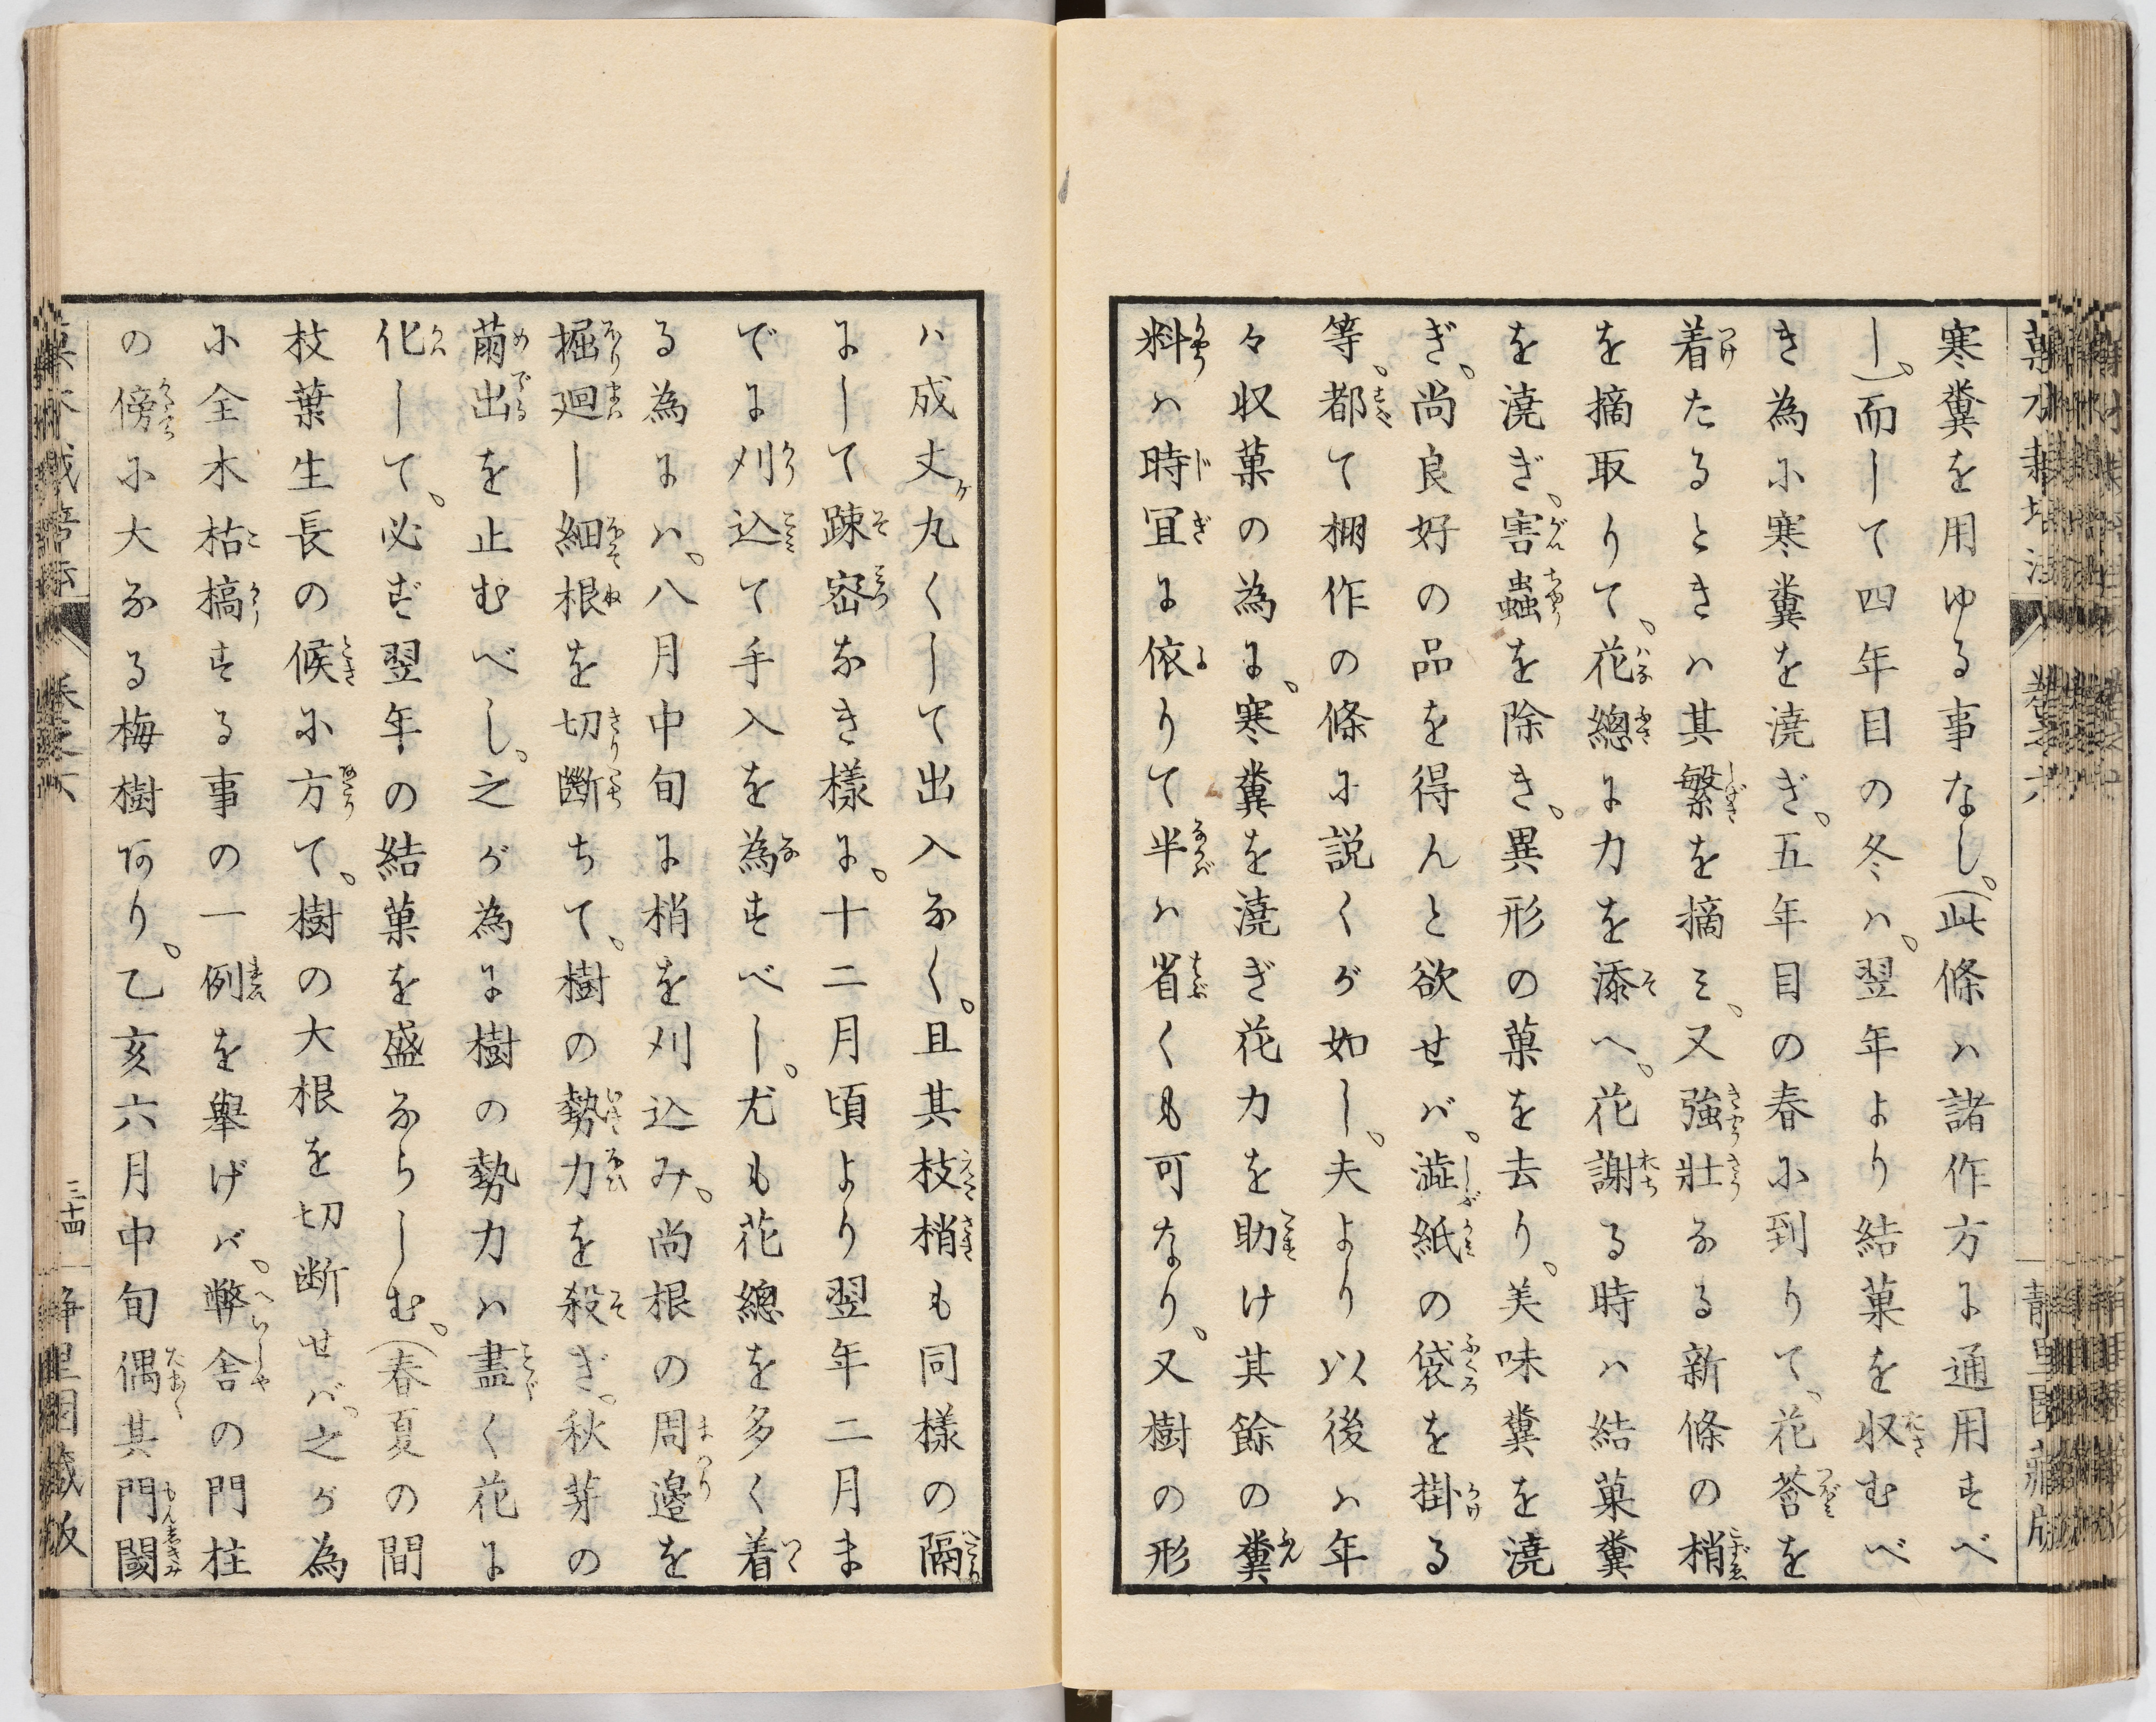 寒糞を用ゆる事なし。(此條ハ諸作方に通用すべ
し)。而して四年目の冬ハ。翌年より結菓を収むべ
き為に寒糞を澆ぎ。五年目の春に到りて。花莟を
着たるときハ其繁を摘ミ。又強壯なる新條の梢
を摘取りて。花總に力を添へ。花謝る時ハ結菓糞
を澆ぎ。害蟲を除き。異形の菓を去り。美味糞を澆
ぎ。尚良好の品を得んと欲せバ。澁紙の袋を掛る
等。都て棚作の條に説くが如し。夫より以後ハ年
々収菓の為に。寒糞を澆ぎ花力を助け其餘の糞
料ハ時冝に依りて半ハ省くも可なり。又樹の形
ハ成丈ケ丸くして出入なく。且其枝梢も同樣の隔
にして踈密なき樣に。十二月頃より翌年二月ま
でに刈込て手入を為すべし。尤も花總を多く着
る為にハ。八月中旬に梢を刈込み。尚根の周邉を
掘廻し細根を切斷ちて。樹の勢力を殺ぎ。秋芽の
萠出を止むべし。之が為に樹の勢力ハ盡く花に
化して。必ず翌年の結菓を盛ならしむ。(春夏の間
枝葉生長の候に方て。樹の大根を切断せバ。之が為
に全木枯槁する事の一例を舉げバ。弊舎の門柱
の傍に大なる梅樹あり。乙亥六月中旬偶其門閾
三十四